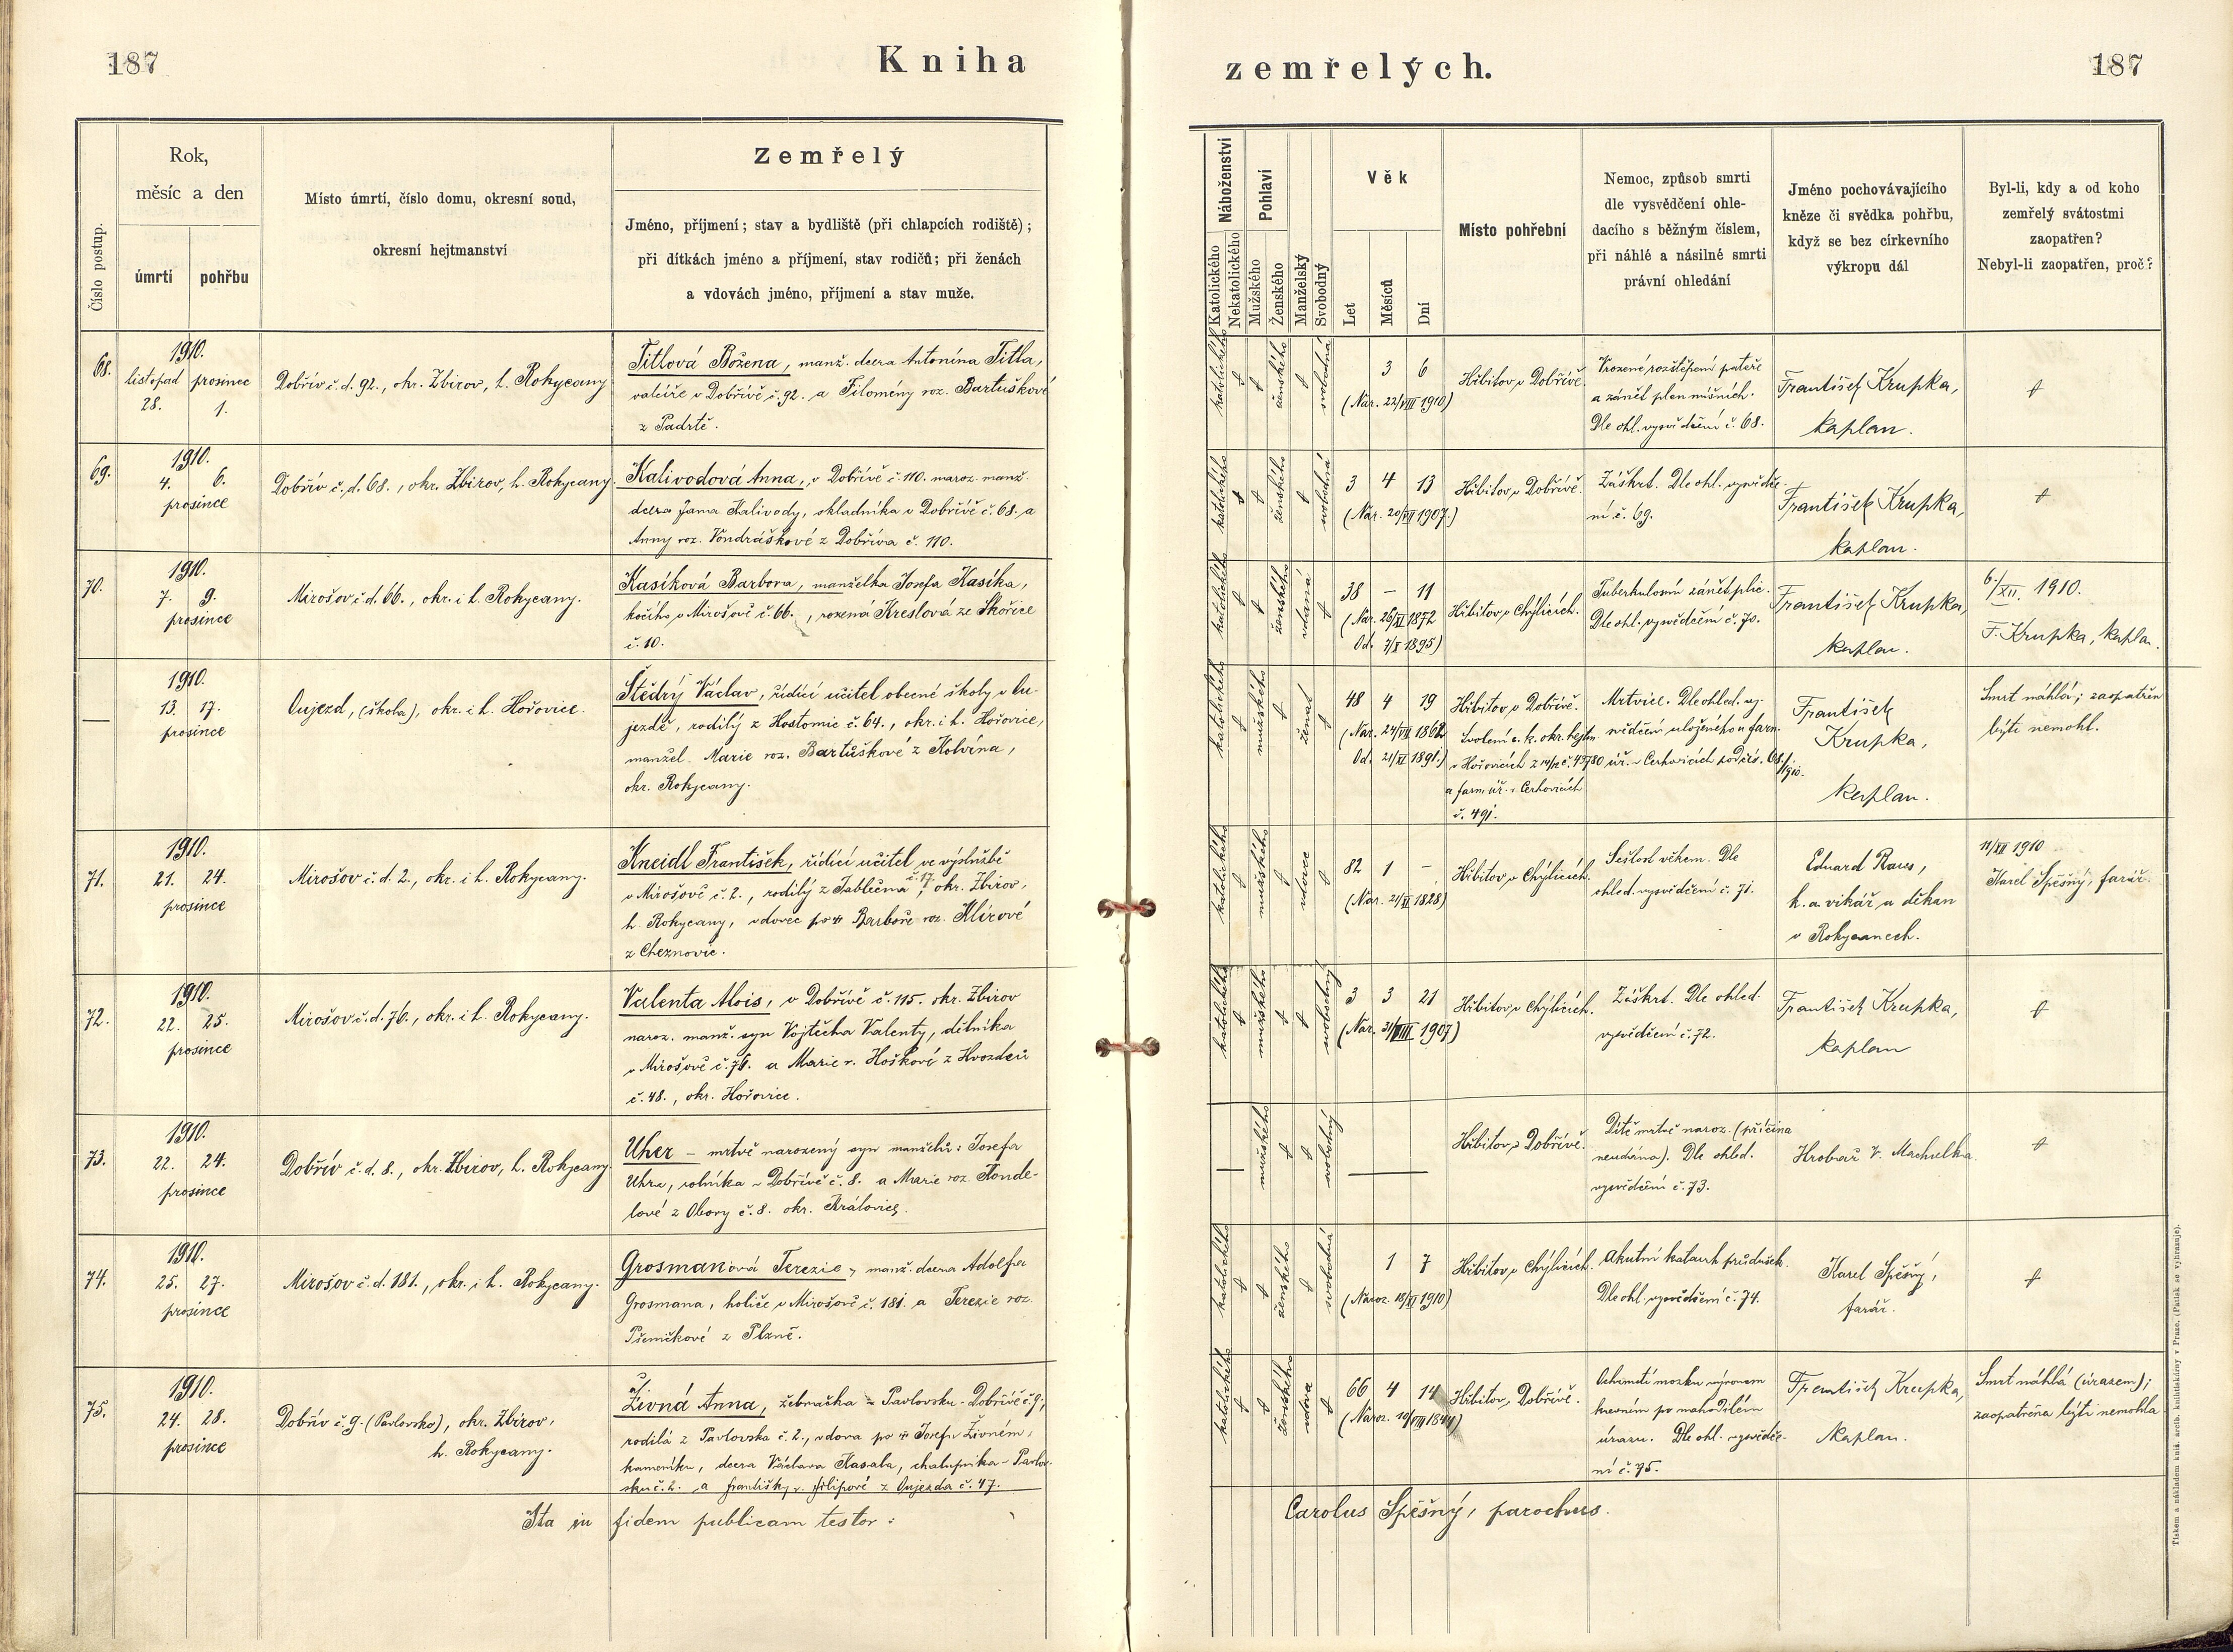 187
Kniha
zemřelých.
187
Číslo postup.
Rok,
měsíc a den
úmrtí
pohřbu
Místo úmrtí, číslo domu, okresní soud,
okresní hejtmanství
Zemřelý
Jméno, příjmení; stav a bydliště (při chlapcích rodiště);
při dítkách jméno a příjmení, stav rodičů; při ženách
a vdovách jméno, příjmení a stav muže.
Náboženství
Katolického
Nekatolického
Pohlaví
Mužského
Ženského
Manželský
Svobodný
Věk
Let
Měsíců
Dní
Místo pohřební
Nemoc, způsob smrti
dle vysvědčení ohle-
dacího s běžným číslem,
při náhlé a násilné smrti
právní ohledání
Jméno pochovávajícího
kněze či svědka pohřbu,
když se bez církevního
výkropu dál
Byl-li, kdy a od koho
zemřelý svátostmi
zaopatřen?
Nebyl-li zaopatřen, proč?
68.
1910.
listopad prosinec
28. 1.
Dobřív č. d. 92., okr. Zbirov, h. Rokycany
Titlová Božena, manž. dcera Antonína Titla,
valcíře v Dobřívě č. 92. a Filomény roz. Bartuškové
z Padrtě.
katolického
ženského
svobodná
3 6
(Nar. 22/VIII 1910)
Hřbitov v Dobřívě.
Vrozené rozštěpení páteře
a zánět plen míšních.
Dle ohl. vysvědčení č. 68.
František Krupka,
kaplan.
69.
1910.
4. 6.
prosince
Dobřív č. d. 68., okr. Zbirov, h. Rokycany.
Kalivodová Anna, v Dobřívě č. 110. naroz. manž.
dcera Jana Kalivody, skladníka v Dobřívě č. 68. a
Anny roz. Vondráškové z Dobříva č. 110.
katolického
ženského
svobodná
3 4 13
(Nar. 20/VII 1907.)
Hřbitov v Dobřívě.
Záškrt. Dle ohl. vysvědče-
ní č. 69.
František Krupka,
kaplan.
70.
1910.
7. 9.
prosince
Mirošov č. d. 66., okr. i h. Rokycany.
Kasíková Barbora, manželka Josefa Kasíka,
kočího v Mirošově č. 66., rozená Kreslová ze Skořice
č. 10.
katolického
ženského
vdaná
38 – 11
(Nar. 26/XI 1872
Od. 7/X 1895)
Hřbitov v Chýlicích.
Tuberkulosní zánět plic.
Dle ohl. vysvědčení č. 70.
František Krupka,
kaplan.
6./XII. 1910.
F. Krupka, kaplan.
—
1910.
13. 17.
prosince
Oujezd, (škola), okr. i h. Hořovice.
Štědrý Václav, řídící učitel obecné školy v Ou-
jezdě, rodilý z Hostomic č. 64., okr. i h. Hořovice,
manžel Marie roz. Bartůškové z Kolvína,
okr. Rokycany.
katolického
mužského
ženat
48 4 19
(Nar. 24/VII 1862
Od. 21/XI 1891.)
Hřbitov v Dobřívě.
Svolení c. k. okr. hejtm.
v Hořovicích z 14/12 č. 43780
a farní úř. v Cerhovicích
č. 491.
Mrtvice. Dle ohled. vy-
svědčení uloženého u farn.
úř. v Cerhovicích pod čís. 68./1910.
František
Krupka,
kaplan.
Smrt náhlá; zaopatřen
býti nemohl.
71.
1910.
21. 24.
prosince
Mirošov č. d. 2., okr. i h. Rokycany.
Kneidl František, řídící učitel ve výslužbě
v Mirošově č. 2., rodilý z Jablečna č. 17., okr. Zbirov,
h. Rokycany, vdovec po † Barboře roz. Klírové
z Cheznovic.
katolického
mužského
vdovec
82 1 –
(Nar. 21/XI 1828)
Hřbitov v Chýlicích.
Sešlost věkem. Dle
ohled. vysvědčení č. 71.
Eduard Raws,
k. a. vikář a děkan
v Rokycanech.
11/XII 1910
Karel Spěšný, farář.
72.
1910.
22. 25.
prosince
Mirošov č. d. 76., okr. i h. Rokycany.
Valenta Alois, v Dobřívě č. 115. okr. Zbirov
naroz. manž. syn Vojtěcha Valenty, dělníka
v Mirošově č. 76. a Marie r. Hoškové z Hvozdců
č. 48., okr. Hořovice.
katolického
mužského
svobodný
3 3 21
(Nar. 31/VIII 1907)
Hřbitov v Chýlicích.
Záškrt. Dle ohled.
vysvědčení č. 72.
František Krupka,
kaplan
73.
1910.
22. 24.
prosince
Dobřív č. d. 8., okr. Zbirov, h. Rokycany
Uher – mrtvě narozený syn manželů: Josefa
Uhra, rolníka v Dobřívě č. 8. a Marie roz. Fonde-
lové z Obory č. 8. okr. Královice.
mužského
svobodný
Hřbitov v Dobřívě.
Dítě mrtvě naroz. (příčina
neudána). Dle ohled.
vysvědčení č. 73.
Hrobař V. Machulka.
74.
1910.
25. 27.
prosince
Mirošov č. d. 181., okr. i h. Rokycany.
Grosmanová Terezie, manž. dcera Adolfa
Grosmana, holiče v Mirošově č. 181. a Terezie roz.
Pšeničkové z Plzně.
katolického
ženského
svobodná
1 7
(Naroz. 18/XI 1910)
Hřbitov v Chýlicích.
Akutní katarrh průdušek.
Dle ohl. vysvědčení č. 74.
Karel Spěšný,
farář.
75.
1910.
24. 28.
prosince
Dobřív č. 9. (Pavlovsko), okr. Zbirov,
h. Rokycany.
Živná Anna, žebračka z Pavlovsku-Dobřívě č. 9.,
rodilá z Pavlovska č. 2., vdova po † Josefu Živném,
kameníku, dcera Václava Kasala, chalupníka v Pavlov-
sku č. 2. a Františky r. Filipové z Oujezda č. 47.
katolického
ženského
vdova
66 4 14
(Naroz. 10/VIII 1844)
Hřbitov v Dobřívě.
Ochrnutí mozku výronem
krevním po nahodilém
úrazu. Dle ohl. vysvědče-
ní č. 75.
František Krupka,
kaplan.
Smrt náhlá (úrazem);
zaopatřena býti nemohla
Ita in fidem publicam testor:
Carolus Spěšný, parochus.
Tiskem a nákladem kníž. arcib. knihtiskárny v Praze. (Patisk se vyhrazuje).